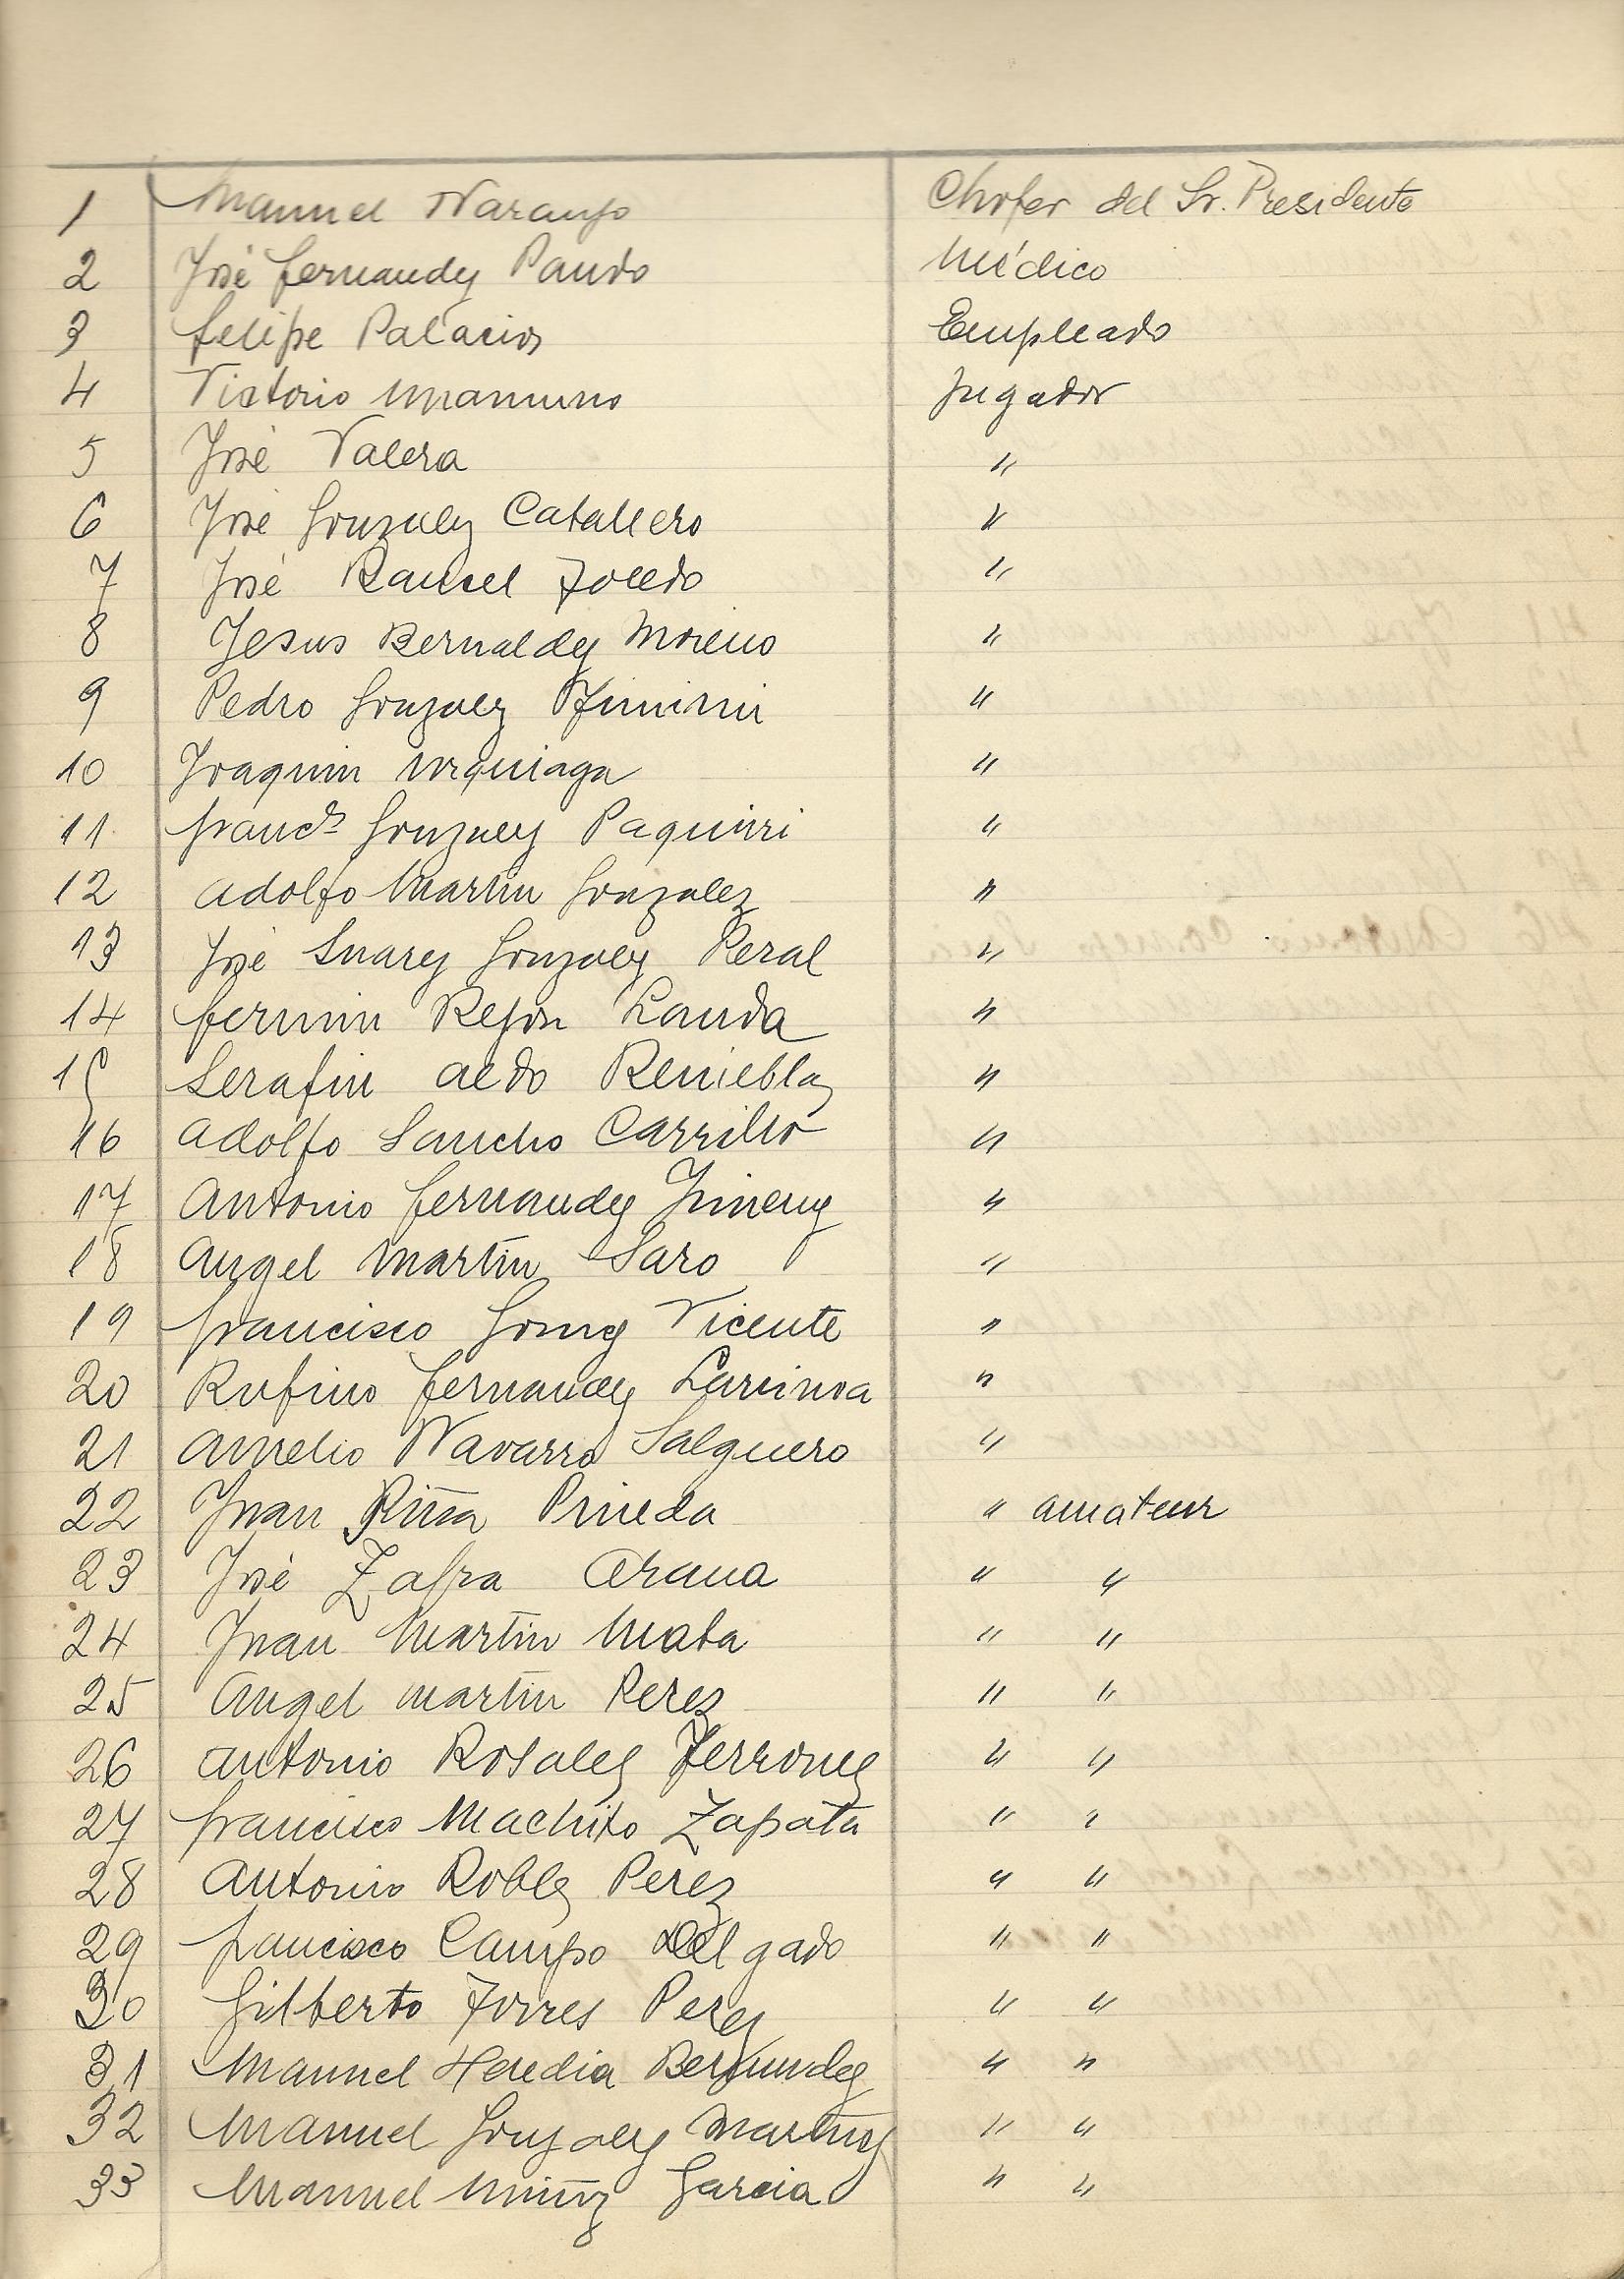 1 Manuel Naranjo Chofer del Sr. Presidente
2 José Fernandez Pando Médico
3 Felipe Palacios Empleado
4 Victorio Unamuno Jugador
5 José Valera "
6 José Gonzalez Caballero "
7 José Rancel Toledo "
8 Jesus Bernaldez Moreno "
9 Pedro Gonzalez "
10 Joaquin Urquiaga "
11 Francº Gonzalez Paquirri "
12 Adolfo Martin Gonzalez "
13 José Suarez Gonzalez Peral "
14 Fermin Rejon Landa "
15 Serafin Aedo Renieblas "
16 Adolfo Sancho Carrillo "
17 Antonio Fernandez Jimenez "
18 Angel Martin Saro "
19 Francisco Gomez Vicente "
20 Rufino Fernandez Larrinoa "
21 Aurelio Navarro Salguero "
22 Juan Pineda " amateur
23 José Zafra Arana " "
24 Juan Martin Mata " "
25 Angel Martin Perez " "
26 Antonio Rosales Terrones " "
27 Francisco Machito Zapata " "
28 Antonio Robles Perez " "
29 Francisco Campo Delgado " "
30 Gilberto Torres Perez " "
31 Manuel Heredia Bermudez " "
32 Manuel Gonzalez Martinez " "
33 Manuel Muñiz Garcia " "